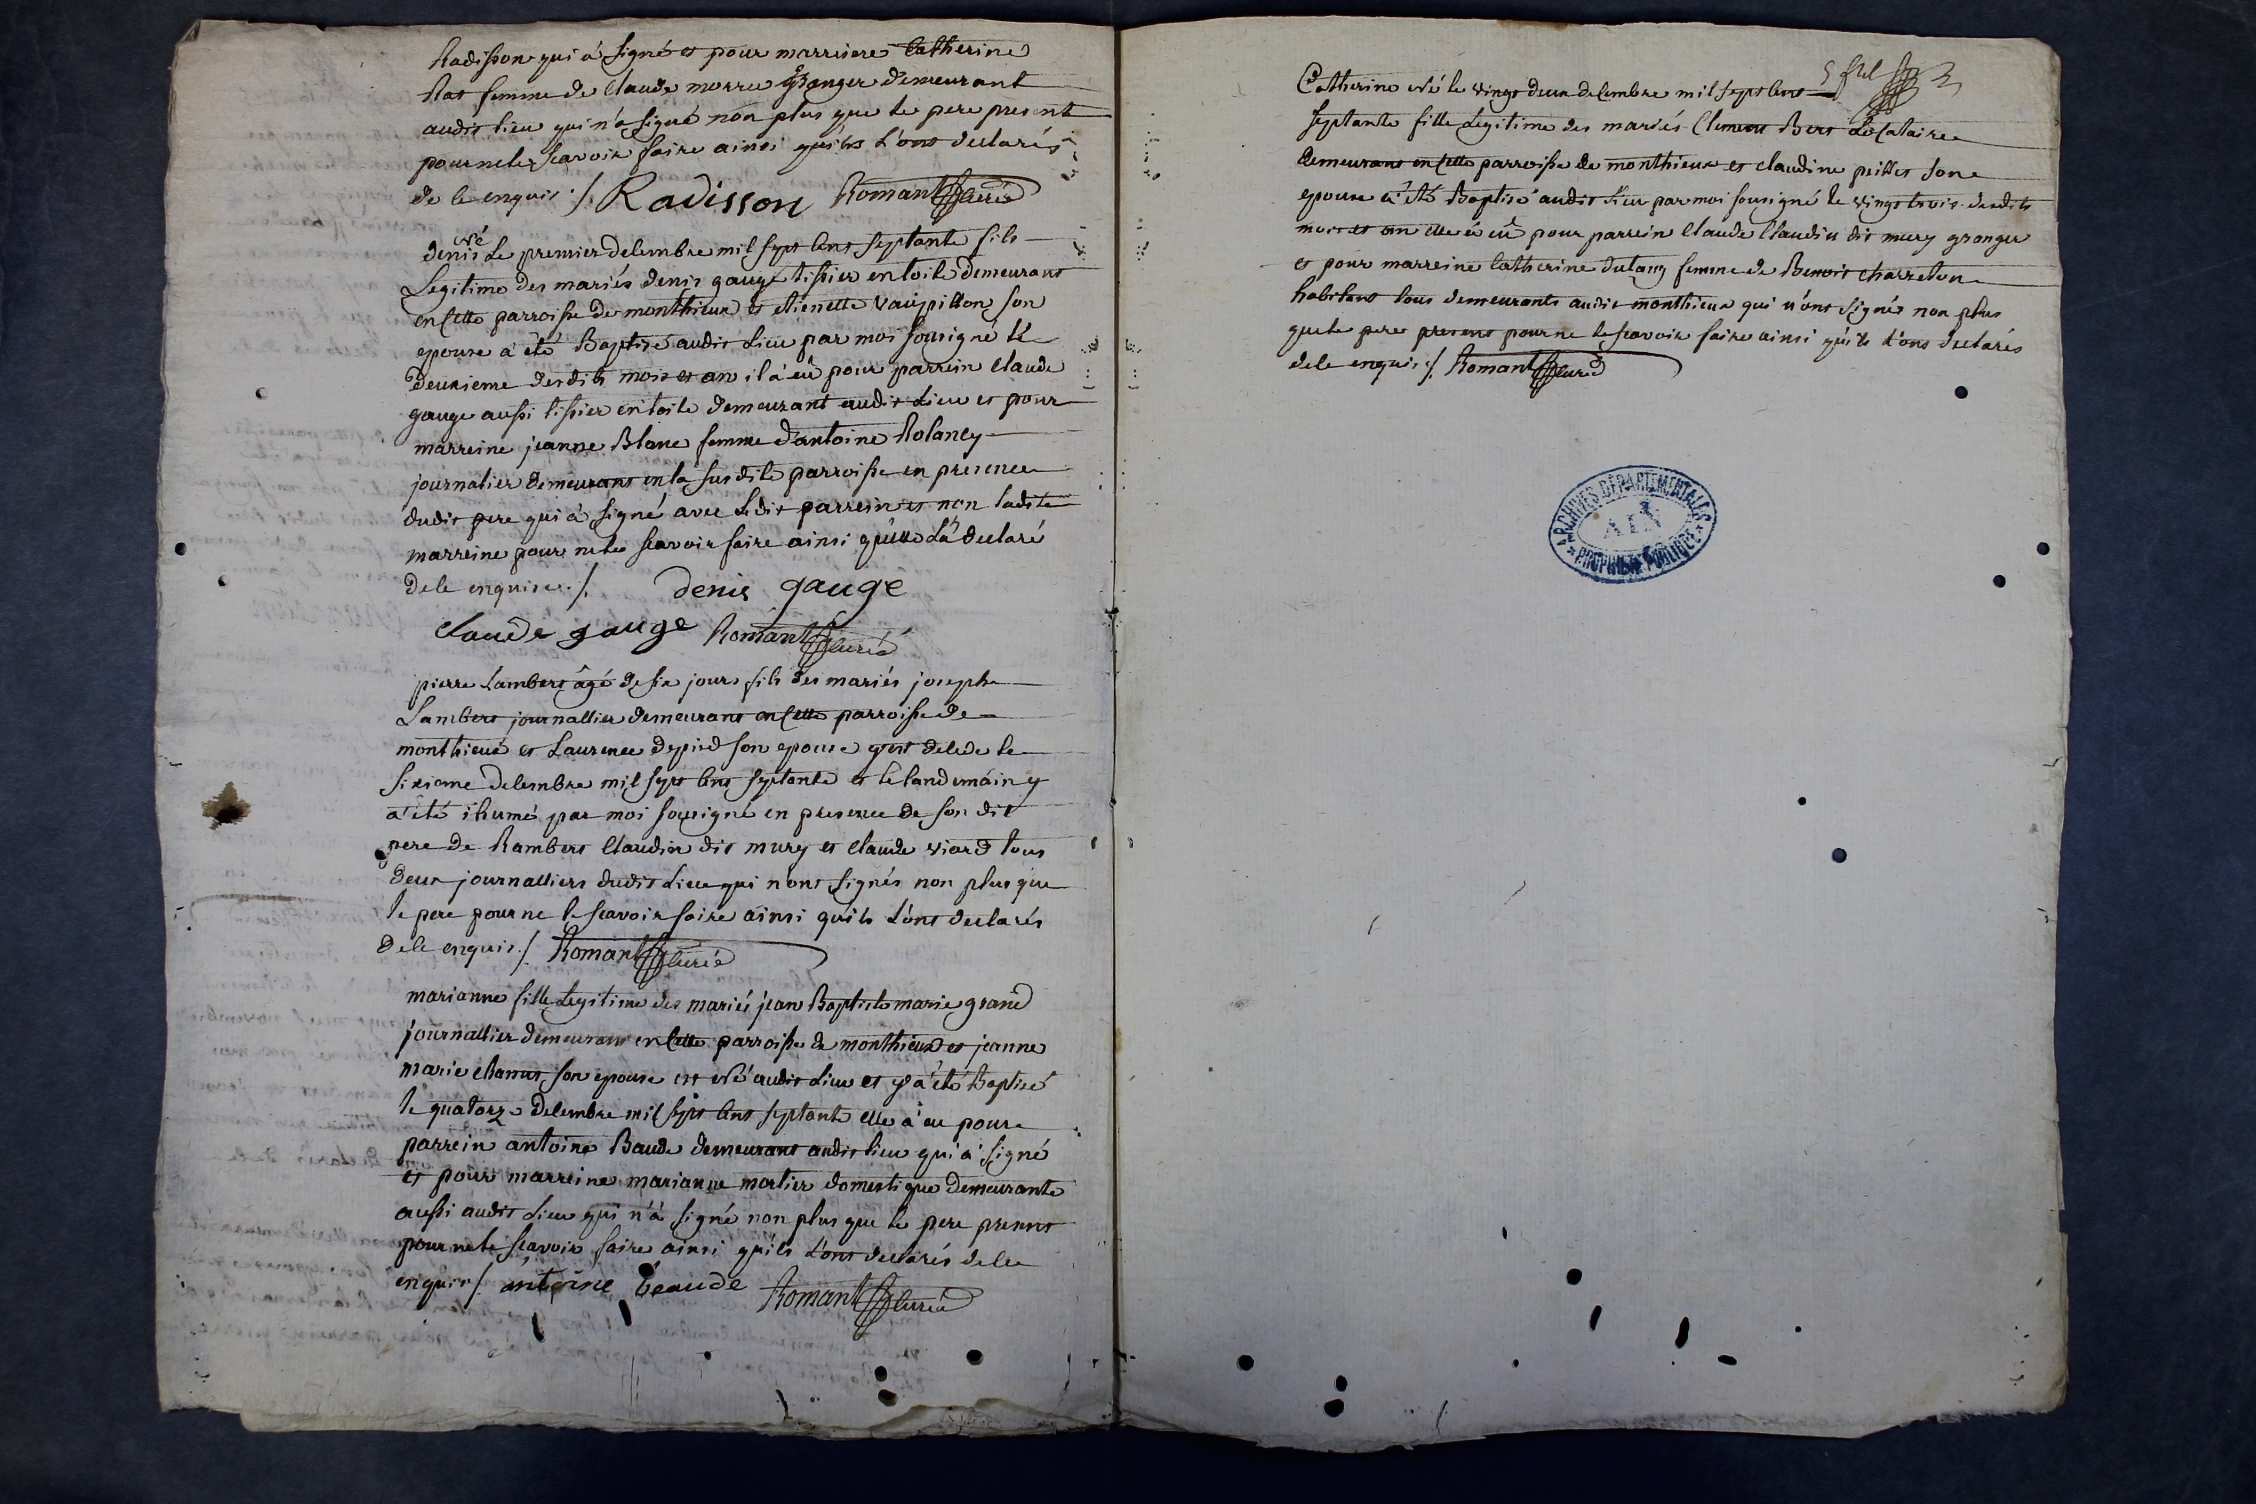 Radisson qui à signé et pour marreine Catherine
Ras femme de Claude morre granger demeurant
audit lieu qui n'à signé non plus que le pere present
pour ne le scavoir faire ainsi qu'ils l'ont declarés
de ce enquis ./. Radisson Romant Curé
né
denis le premier decembre mil sept cent septante fils
Legitime des mariés denis gauge tissier en toile demeurant
en cette parroisse de monthieux et etienette Vaupillon son
epouse à été Baptisé audit lieu par moi sousigné le
deuxieme desdits mois et an il à eû pour parrein Claude
gauge aussi tissier en toile demeurant audit Lieu et pour
marreine jeanne Blanc femme d'antoine Rolancy
journalier demeurant en la susdite parroisse en presence
dudit pere qui à signé avec Ledit parrein et non ladite
marreine pour ne le scavoir faire ainsi qu'elle L'à declaré
de le enquise ./. denis gauge
claude gauge Romant Curé
pierre Lambert âgé de six jours fils des mariés joseph
Lambert journallier demeurant en cette parroisse de
monthieux et Laurence depied son epouse y est decede le
sixieme decembre mil sept cent septante et le landemain y
a été ihumé par moi sousigné en presence de son dit
pere de Rambert Claudin dit mury et Claude viard tous
deux journalliers dudit Lieu qui n'ont signés non plus que
le pere pour ne le scavoir faire ainsi qu'ils L'ont declarés
de le enquis ./. Romant Curé
marianne fille Legitime des mariés jean Baptiste marie grand
journallier demeurant en cette parroisse de monthieux et jeanne
marie son epouse est né audit Lieu et y à été Baptisé
le quatorze decembre mil sept cent septante elle à eu pour
parrein antoine Baude demeurant audit lieu qui à signé
et pour marreine marianne mortier domestique demeurante
aussi audit Lieu qui n'à signé non plus que le pere present
pour ne le scavoir faire ainsi qu'ils L'ont declarés de le
enquis ./. antoine beaude Romant Curé
Catherine né le vingt deux decembre mil sept cent
septante fille Legitime des mariés Clement Bert Locataire
demeurant en cette parroisse de monthieux et claudine peillet son
epouse à été Baptisé audit Lieu par moi sousigné le vingt trois desdits
mois et an elle à eû pour parrein Claude Claudin dit mury granger
et pour marreine Catherine dutang femme de Benoit charreton
habitant tous demeurants audit monthieux qui n'ont signés non plus
que le pere present pour ne le scavoir faire ainsi qu'ils L'ont declarés
de le enquis ./. Romant Curé
ARCHIVES DÉPARTEMENTALES
AIN
PROPRIÉTÉ PUBLIQUE